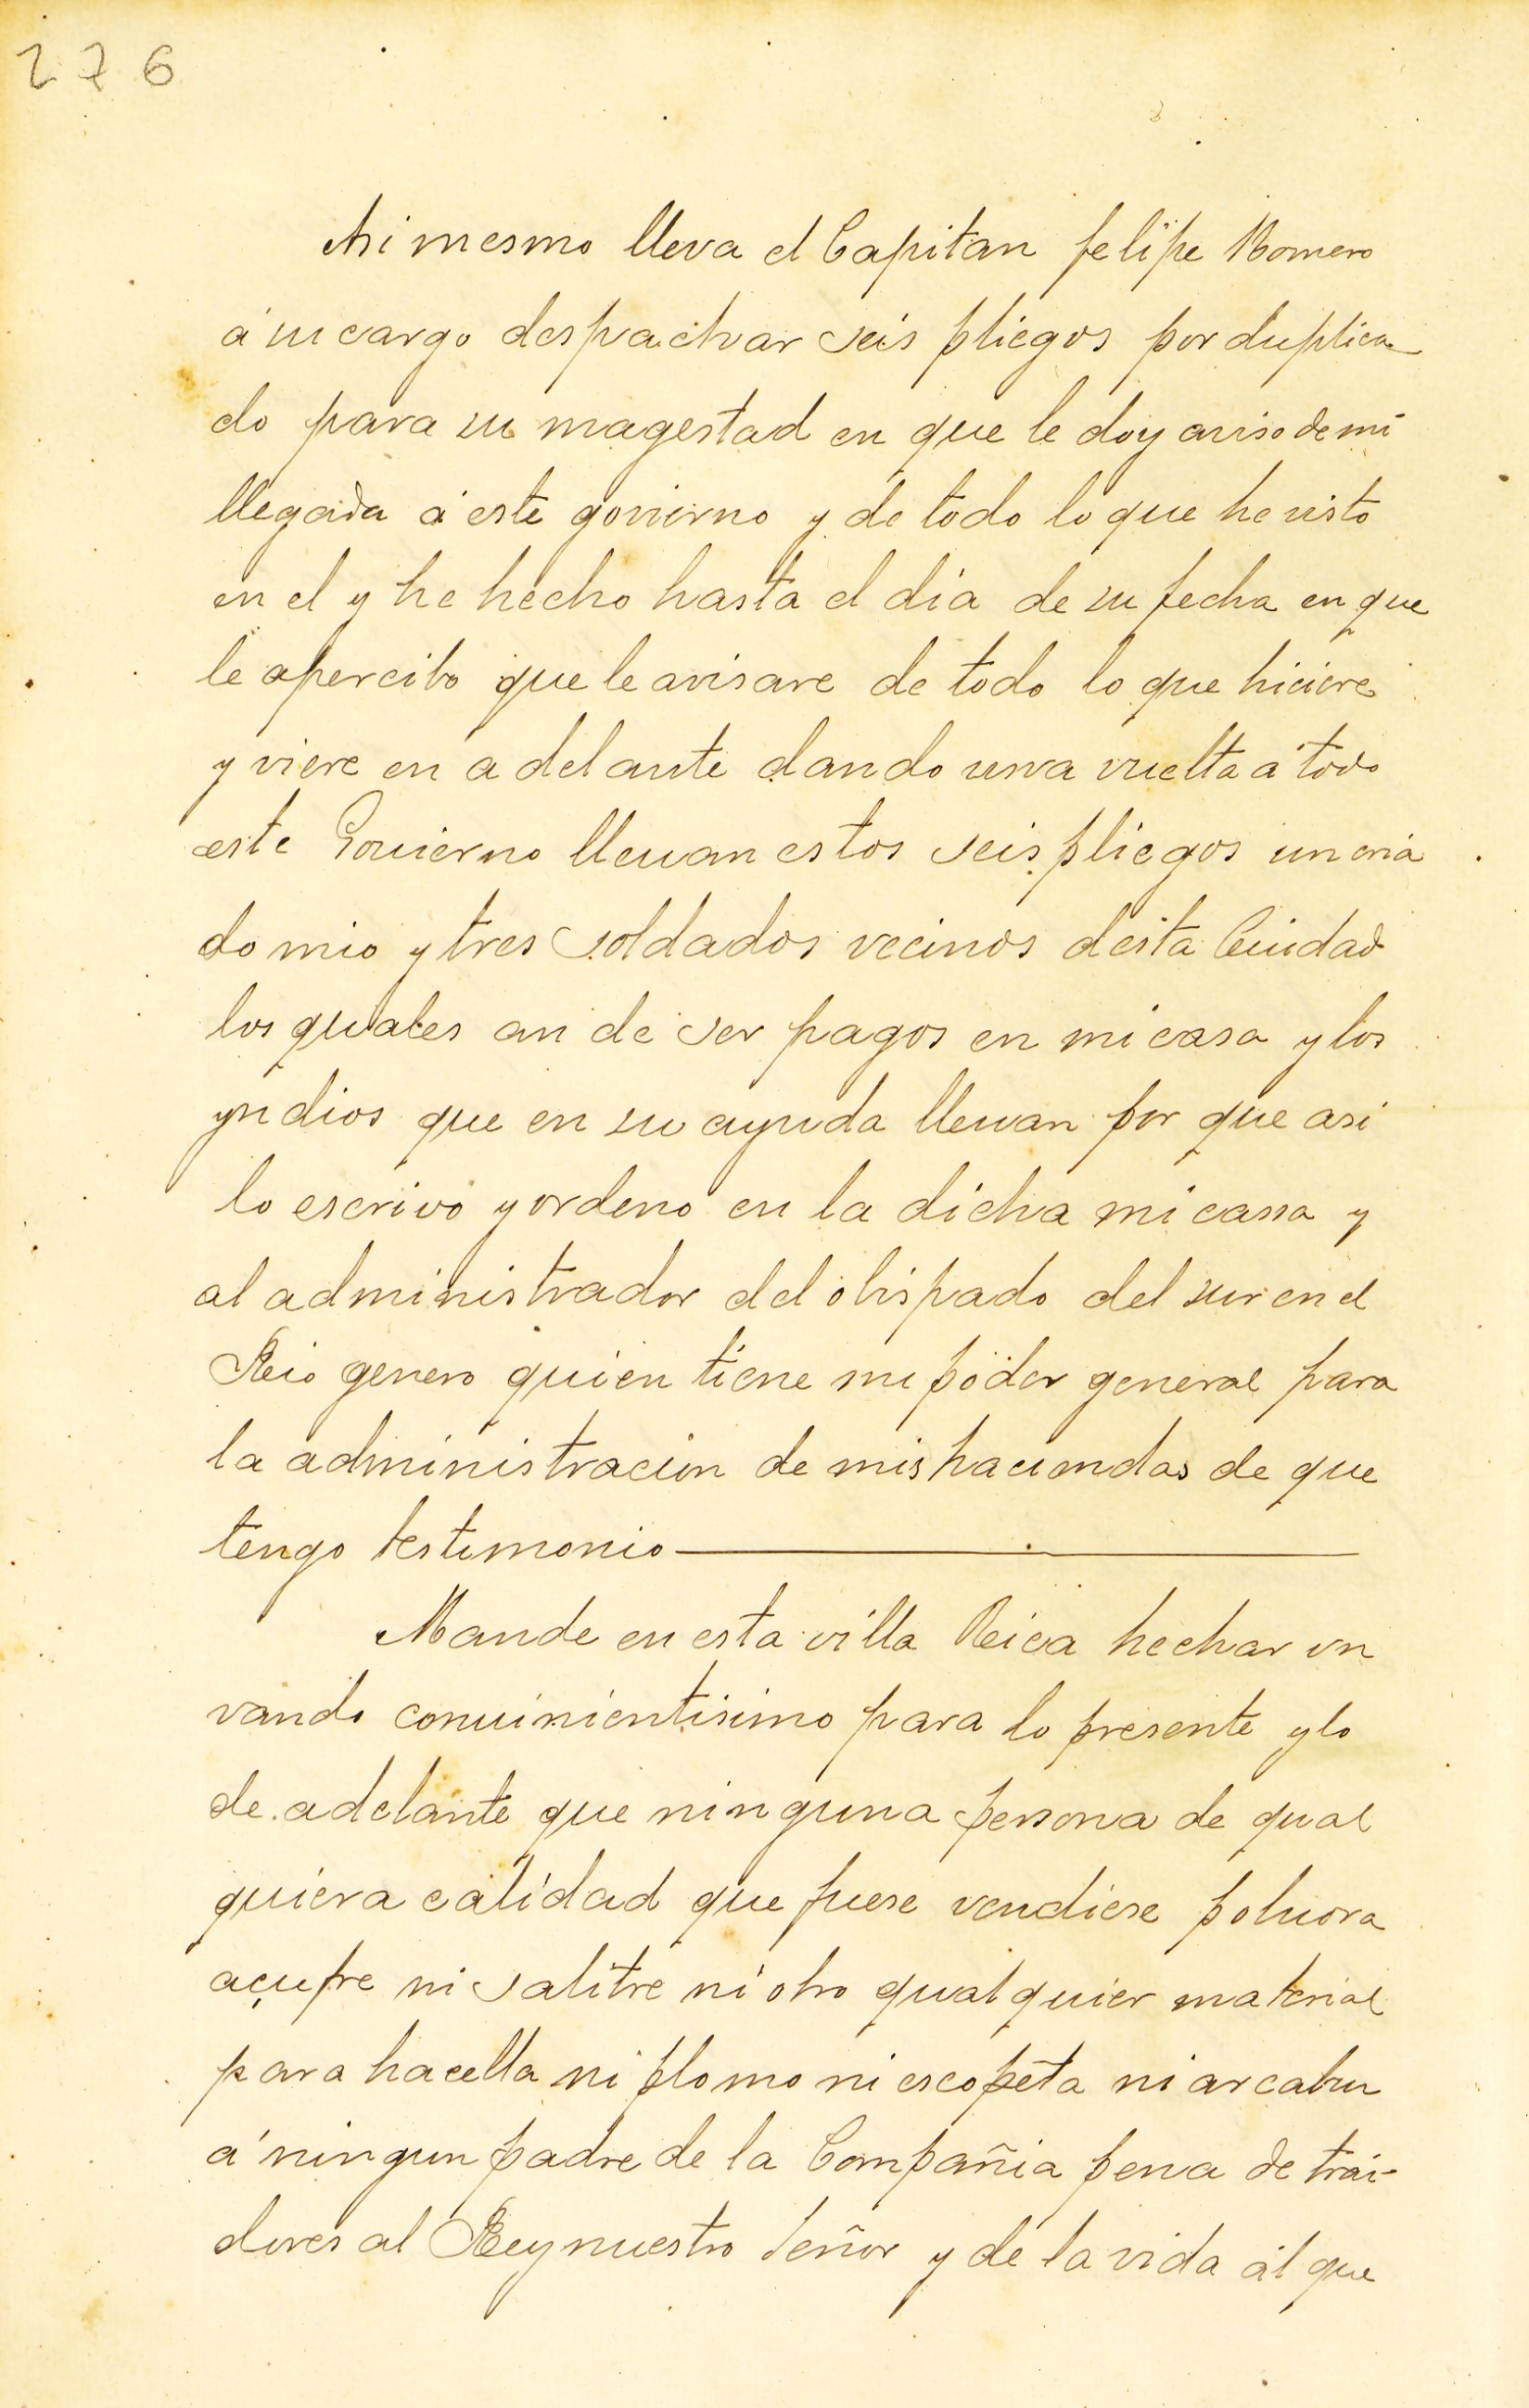 276
Asi mesmo lleva el Capitan felipe Romero
á su cargo despachar seis pliegos por duplica
do para su magestad en que le doy aviso de mi
llegada á este govierno y de todo lo que he visto
en el y he hecho hasta el dia de su fecha en que
le apercibo que le avisare de todo lo que hiciere
y viere en adelante dando una vuelta á todo
este Gouierno lleuan estos seis pliegos un cria
do mio y tres soldados vecinos desta Ciudad
los quales an de ser pagos en mi casa y los
yndios que en su ayuda lleuan por que asi
lo escrivo y ordeno en la dicha mi cassa y
al administrador del obispado del sur en el
Reio genero quien tiene mi poder general para
la administracion de mis haciendas de que
tengo testimonio
Mande en esta villa Reica hechar un
vando conuinientisimo para lo presente y lo
de adelante que ninguna persona de qual
quiera calidad que fuese vendiese poluora
açufre ni salitre ni otro qualquier material
para hacella ni plomo ni escopeta ni arcabu
á ningun padre de la Compañia pena de trai-
dores al Rey nuestro Señor y de la vida al que